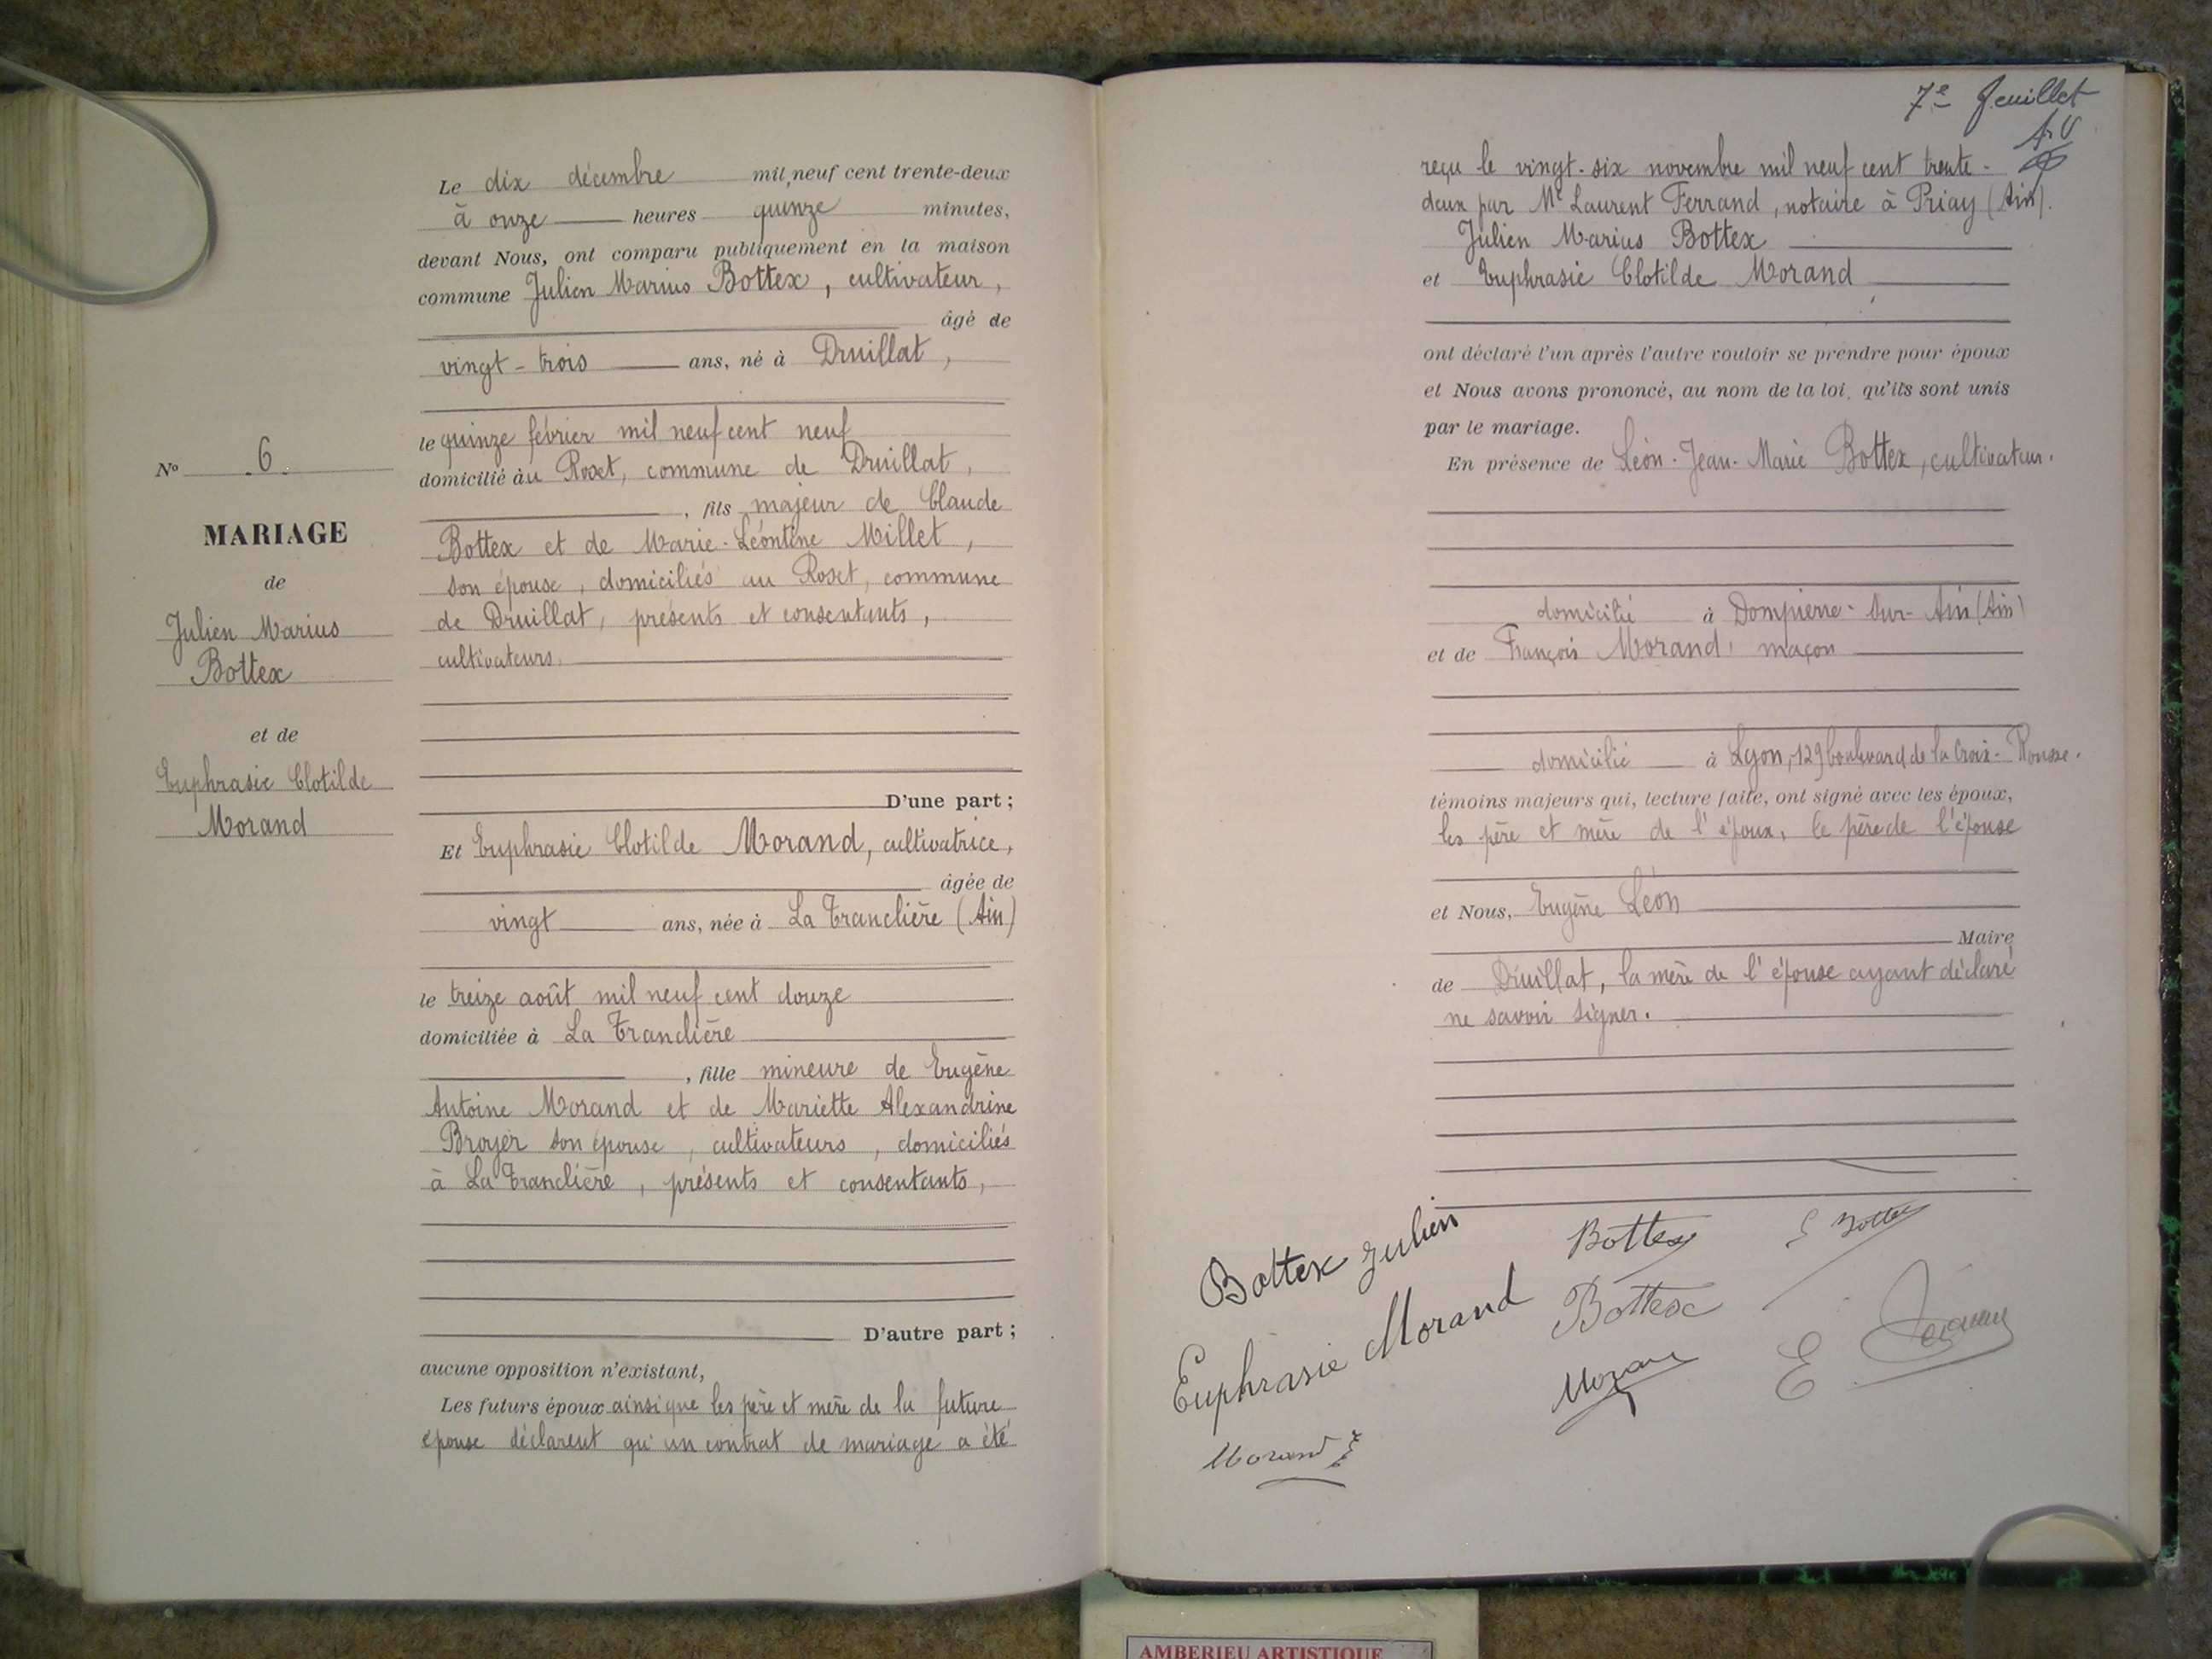 Le dix décembre mil neuf cent trente-deux
à onze heures quinze minutes,
devant Nous, ont comparu publiquement en la maison
commune Julien Marius Bottex, cultivateur,
âgé de
vingt-trois ans, né à Druillat,
le quinze février mil neuf cent neuf
domicilié au Roset, commune de Druillat,
, fils majeur de Claude
Bottex et de Marie-Léontine Millet,
son épouse, domiciliés au Roset, commune
de Druillat, présents et consentants,
cultivateurs.
D'une part;
Et Euphrasie Clotilde Morand, cultivatrice,
âgée de
vingt ans, née à La Tranclière (Ain)
le treize août mil neuf cent douze
domiciliée à La Tranclière
, fille mineure de Eugène
Antoine Morand et de Mariette Alexandrine
Broyer son épouse, cultivateurs, domiciliés
à La Tranclière, présents et consentants,
D'autre part;
aucune opposition n'existant,
Les futurs époux ainsi que les père et mère de la future
épouse déclarent qu'un contrat de mariage a été
No 6.
MARIAGE
de
Julien Marius
Bottex
et de
Euphrasie Clotilde
Morand
7e feuillet
reçu le vingt-six novembre mil neuf cent trente-
deux par Me Laurent Ferrand, notaire à Priay (Ain).
Julien Marius Bottex
et Euphrasie Clotilde Morand
ont déclaré l'un après l'autre vouloir se prendre pour époux
et Nous avons prononcé, au nom de la loi, qu'ils sont unis
par le mariage.
En présence de Léon-Jean-Marie Bottex, cultivateur.
domicilié à Dompierre-sur-Ain (Ain)
et de François Morand, maçon
domicilié à Lyon, 129 boulevard de la Croix-Rousse.
témoins majeurs qui, lecture faite, ont signé avec les époux,
les père et mère de l'époux, le père de l'épouse
et Nous, Eugène Léon
Maire
de Druillat, la mère de l'épouse ayant déclaré
ne savoir signer.
Bottex Julien
Bottex
Bottex
Euphrasie Morand
Bottex
Morand
AMBERIEU ARTISTIQUE